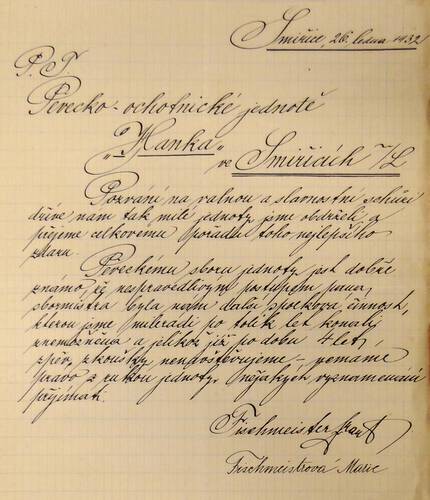 Smiřice, 26. ledna 1932
P. T.
Pěvecko-ochotnické jednotě
„Hanka“
ve Smiřicích n/L
Pozvání na valnou a slavnostní schůzi
dříve nám tak milé jednoty jsme obdrželi a
přejeme celkovému pořadu toho nejlepšího
zdaru.
Pěveckému sboru jednoty jest dobře
známo, že nespravedlivým postupem pana
sbormistra byla nám další spolková činnost,
kterou jsme milerádi po tolik let konali
znemožněna a jelikož již po dobu 4 let,
zpěv. zkoušky nenavštěvujeme – nemáme
právo z rukou jednoty, nějakých vyznamenání
přijímat.
Fischmeister
Fischmeistrová Marie